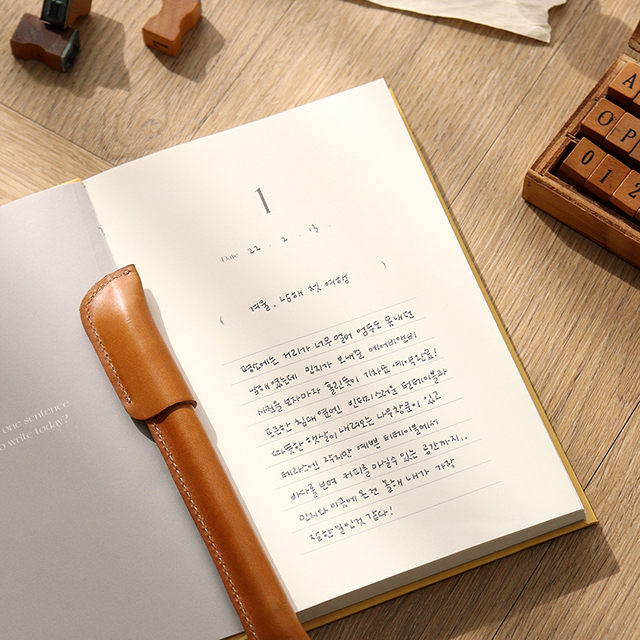 one sentence
o write today?
1
Date 22 . 2 . 13 .
( 겨울, 남해 첫 여행 )
평도에는 거리가 너무 멀어 엄두도 못내던
남해였는데 민지가 보내준 에어비앤비
사진을 보자마자 홀린듯이 기차표 예매완료!
포근한 침대 옆엔 턴테이블과
따뜻한 햇살이 내려오는 나무창틀이 있고
테라스엔 작지만 예쁜 티테이블에서
바다를 보며 커피를 마실수 있는 공간까지..
민지와 이곳에 온건 올해 내가 가장
잘한 일인것 같다!
A
O P
0 1 2